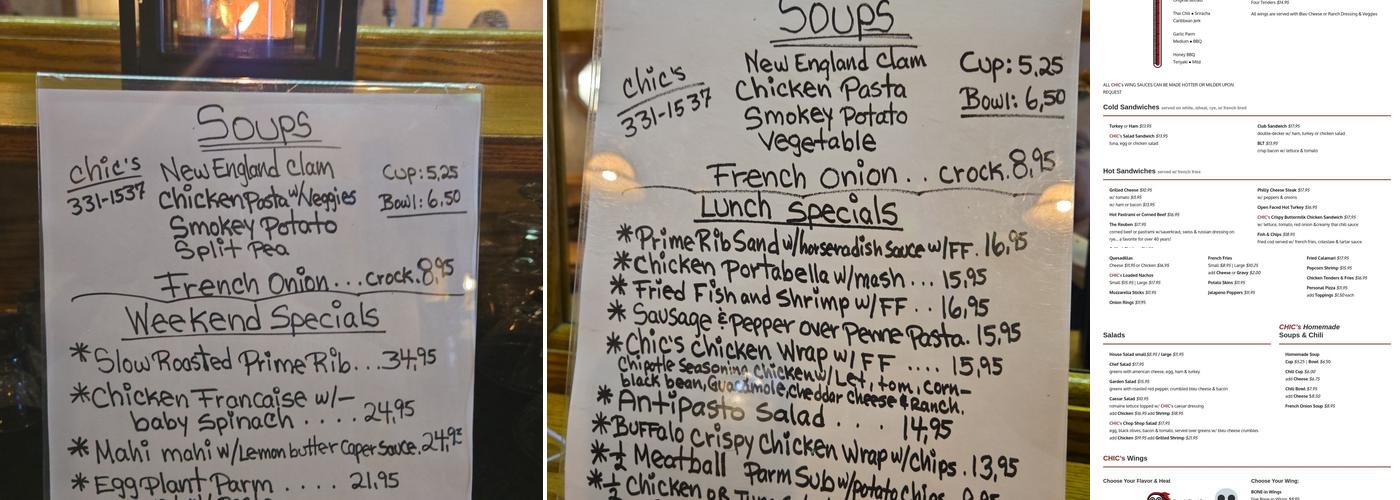 Soups
chic's
331-1537
New England Clam
Chicken Pasta w/Veggies
Smokey Potato
Split Pea
Cup: 5,25
Bowl: 6,50
French Onion... crock. 8,95
Weekend Specials
* Slow Roasted Prime Rib...34,95
* Chicken Francaise w/-
baby Spinach ..... 24,95
* Mahi mahi w/Lemon butter Caper Sauce. 24,95
* EggPlant Parm .... 21.95
Soups
chic's
331-1537
New England Clam
Chicken Pasta
Smokey Potato
Vegetable
Cup: 5,25
Bowl: 6,50
French Onion.. crock. 8,95
Lunch Specials
* Prime Rib Sand w/horseradish Sauce w/FF. 16,95
* Chicken Portabella w/mash... 15,95
* Fried Fish and Shrimp w/FF .. 16,95
* Sausage & Pepper over Penne Pasta. 15,95
* Chic's Chicken Wrap w/ FF .... 15,95
Chipotle Seasoning Chicken w/Let, tom, corn-
black bean, Guacamole, Cheddar Cheese & Ranch.
* Antipasto Salad .... 14,95
* Buffalo Crispy Chicken Wrap w/chips. 13,95
*½ Meatball Parm Sub w/potato chips
Four Tenders $14.95
Thai Chili ● Sriracha
Caribbean Jerk
All wings are served with Bleu Cheese or Ranch Dressing & Veggies
Garlic Parm
Medium ● BBQ
Honey BBQ
Teriyaki ● Mild
ALL CHIC's WING SAUCES CAN BE MADE HOTTER OR MILDER UPON
REQUEST
Cold Sandwiches served on white, wheat, rye, or french bread
Turkey or Ham $13.95
CHIC's Salad Sandwich $13.95
tuna, egg or chicken salad
Club Sandwich $17.95
double-decker w/ ham, turkey or chicken salad
BLT $13.95
crisp bacon w/ lettuce & tomato
Hot Sandwiches served w/ french fries
Grilled Cheese $10.95
w/ tomato $11.95
w/ ham or bacon $13.95
Hot Pastrami or Corned Beef $16.95
The Reuben $17.95
corned beef or pastrami w/sauerkraut, swiss & russian dressing on
rye... a favorite for over 40 years!
Philly Cheese Steak $17.95
w/ peppers & onions
Open Faced Hot Turkey $16.95
CHIC's Crispy Buttermilk Chicken Sandwich $17.95
w/ lettuce, tomato, red onion &creamy thai chili sauce
Fish & Chips $18.95
fried cod served w/ french fries, coleslaw & tartar sauce
Quesadillas
Cheese $11.95 or Chicken $14.95
CHIC's Loaded Nachos
Small $15.95 | Large $17.95
Mozzarella Sticks $11.95
Onion Rings $11.95
French Fries
Small $8.95 | Large $10.25
add Cheese or Gravy $2.00
Potato Skins $11.95
Jalapeno Poppers $11.95
Fried Calamari $17.95
Popcorn Shrimp $15.95
Chicken Tenders & Fries $16.95
Personal Pizza $11.95
add Toppings $1.50 each
Salads
House Salad small $8.95 / large $11.95
Chef Salad $17.95
greens with american cheese, egg, ham & turkey
Garden Salad $15.95
greens with roasted red pepper, crumbled bleu cheese & bacon
Caesar Salad $10.95
romaine lettuce topped w/ CHIC's caesar dressing
add Chicken $16.95 add Shrimp $18.95
CHIC's Chop Shop Salad $17.95
egg, black olives, bacon & tomato, served over greens w/ bleu cheese crumbles
add Chicken $19.95 add Grilled Shrimp $21.95
CHIC's Homemade
Soups & Chili
Homemade Soup
Cup $5.25 | Bowl $6.50
Chili Cup $6.00
add Cheese $6.75
Chili Bowl $7.95
add Cheese $8.50
French Onion Soup $8.95
CHIC's Wings
Choose Your Flavor & Heat
Choose Your Wing:
BONE-in Wings